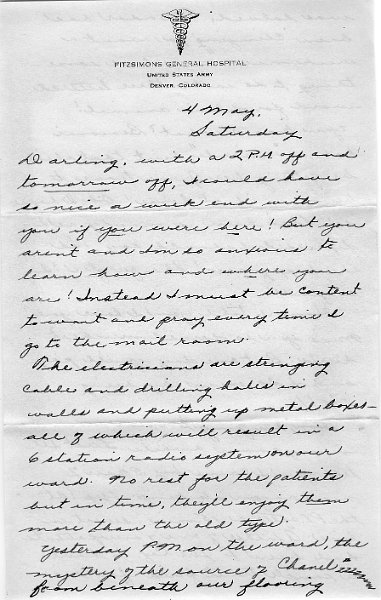 FITZSIMONS GENERAL HOSPITAL
UNITED STATES ARMY
DENVER, COLORADO
4 May,
Saturday
Darling, with a 2 PM off and
tomorrow off, I could have
so nice a week end with
you if you were here! But you
aren't and I'm so anxious to
learn how and where you
are! Instead I must be content
to wait and pray every time I
go to the mail room.
The electricians are stringing
cable and drilling holes in
walls and putting up metal boxes—
all of which will result in a
6 station radio system on our
ward. No rest for the patients
but in time, they'll enjoy them
more than the old type.
Yesterday PM on the ward, the
mystery of the source of "Chanel
from beneath our flooring